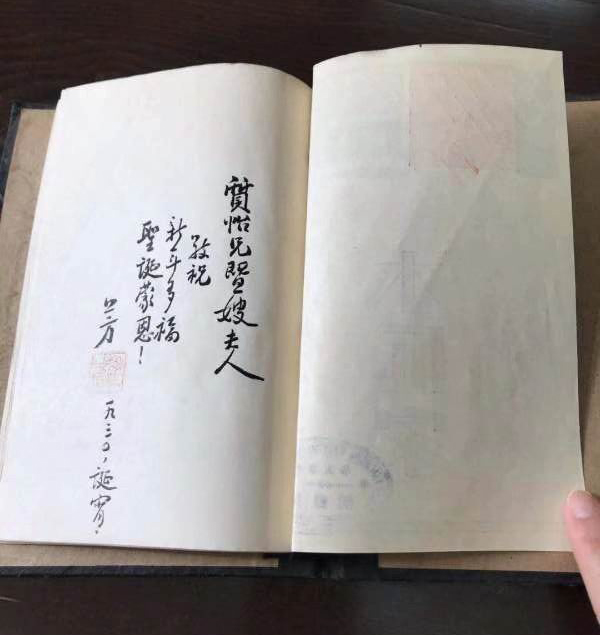 怡兄暨嫂夫人
敬祝
新年多福
聖誕蒙恩！
一九三〇，誕宵．